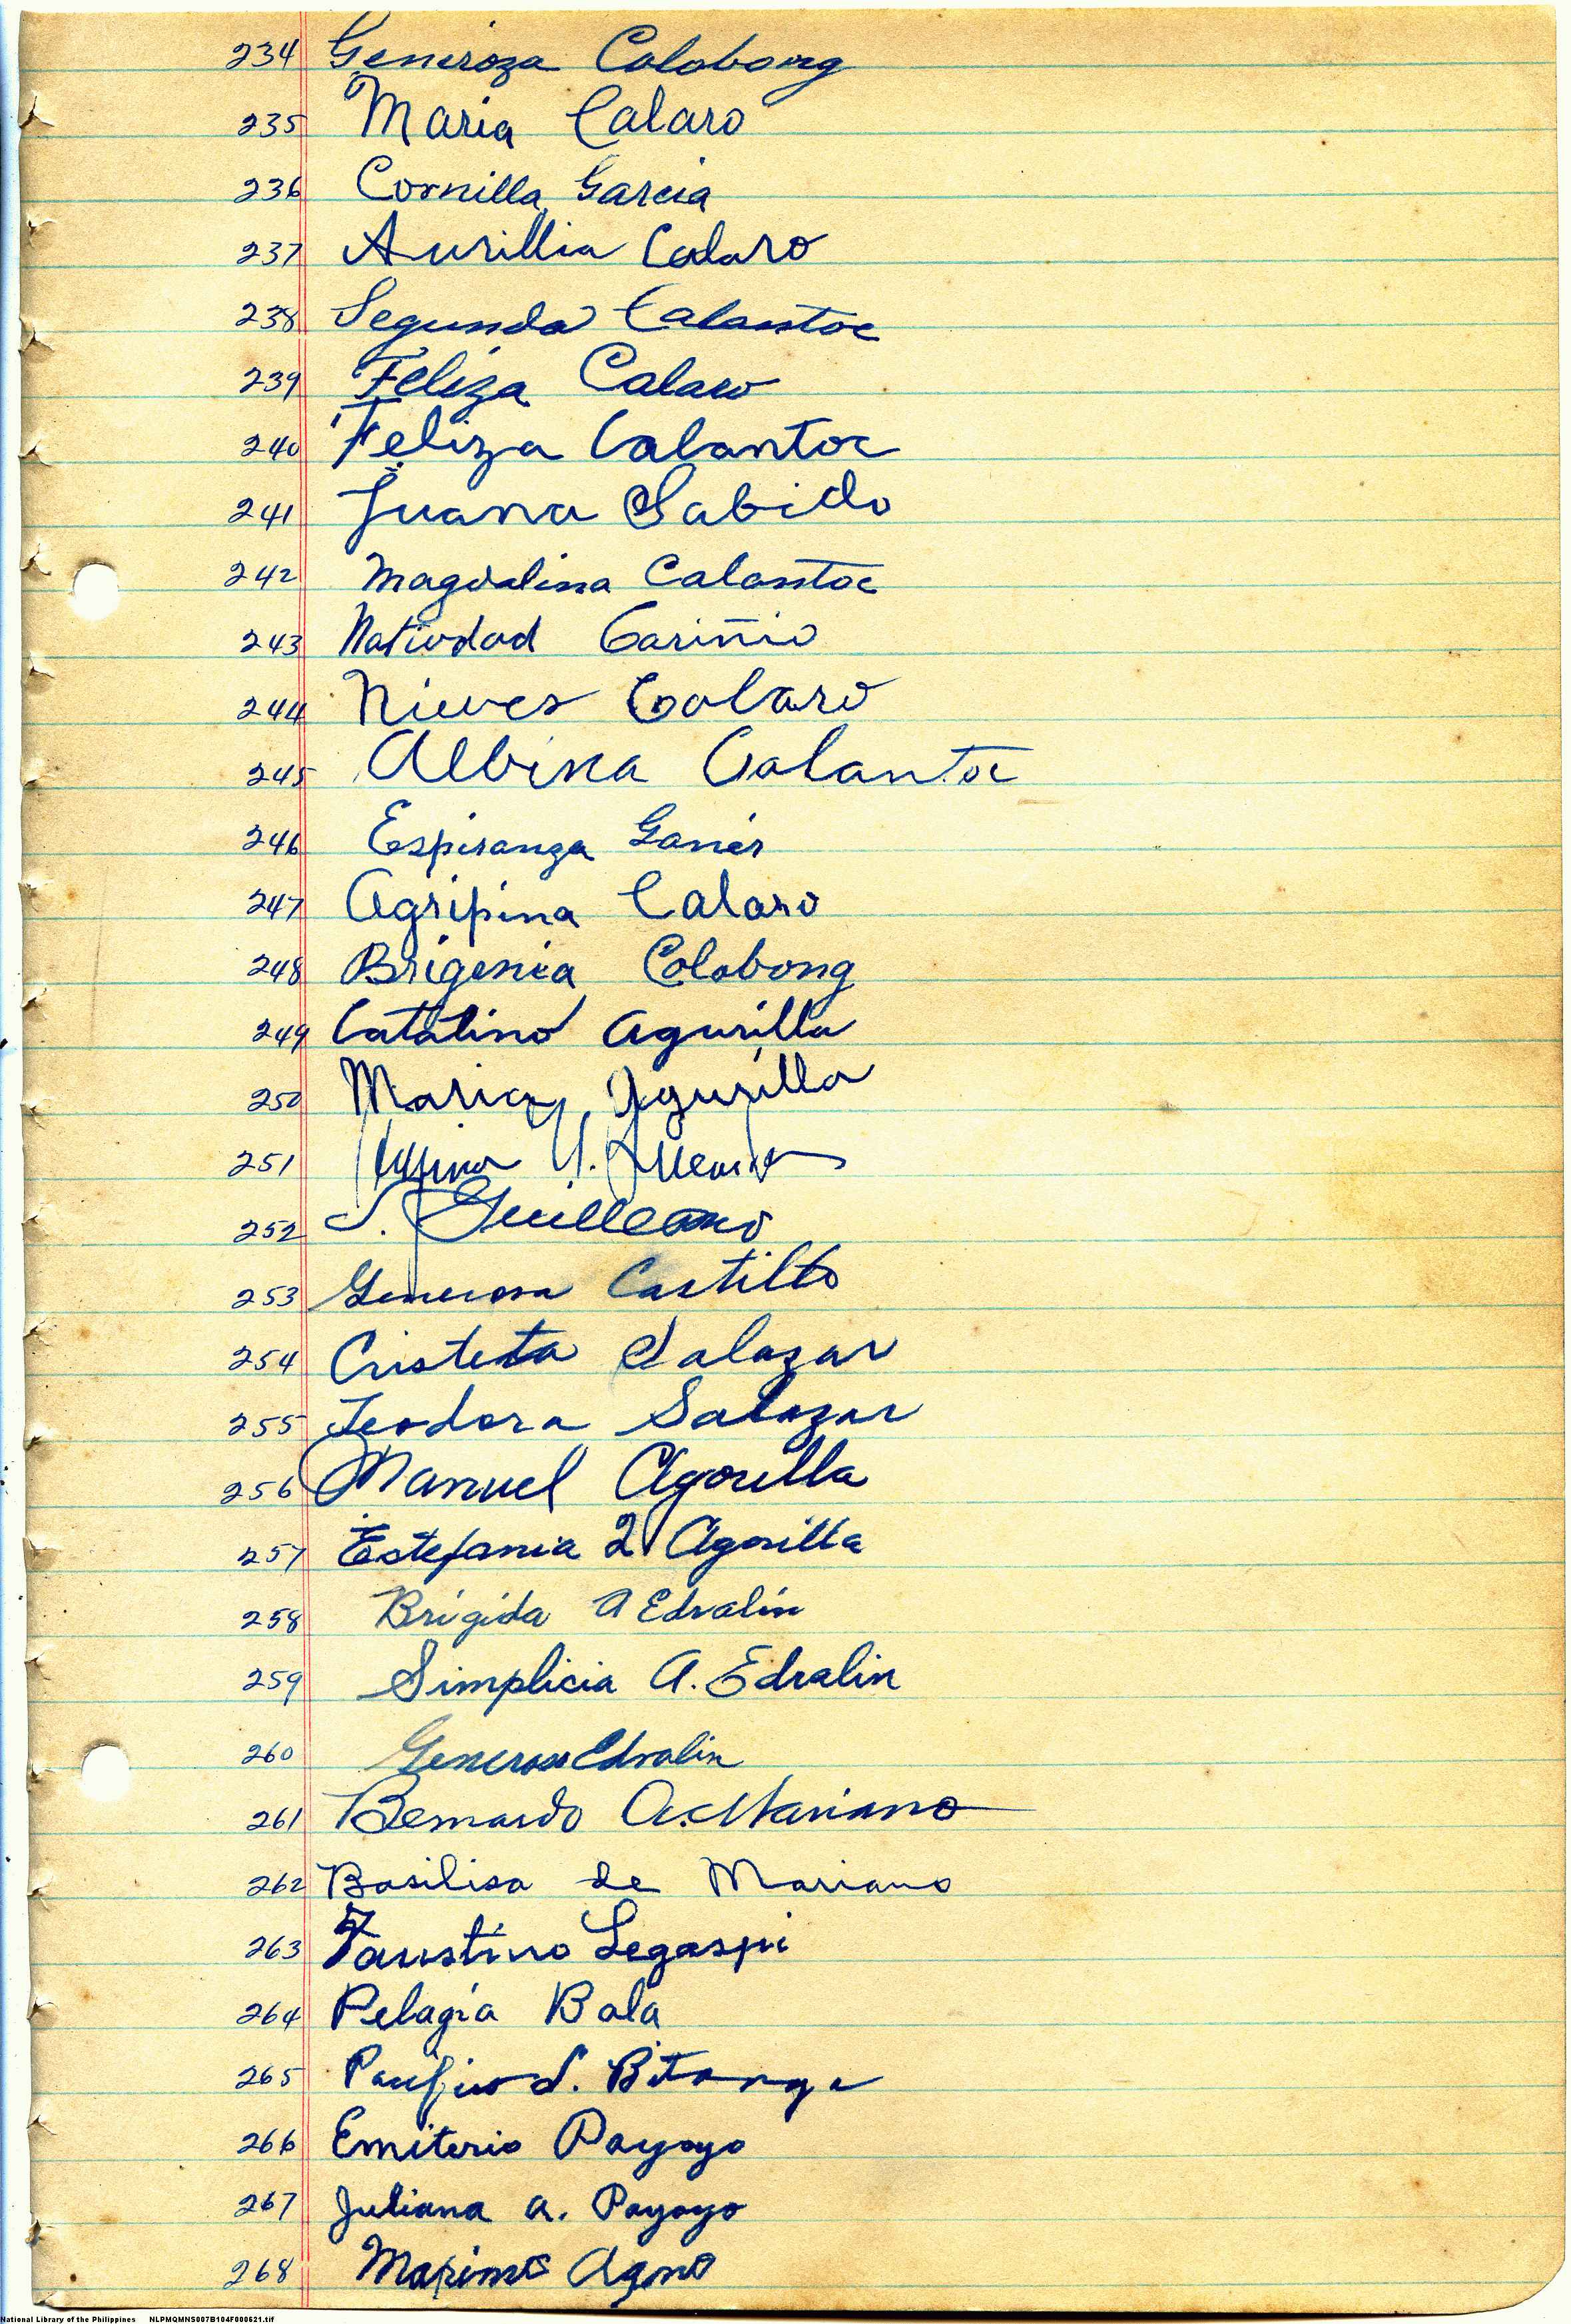 234 Generoza Colobong
235 Maria Calaro
236 Cornilla Garcia
237 Aurillia Calaro
238 Segunda Calantoc
239 Feliza Calaro
240 Feliza Calantoc
241 Juana Sabido
242 Magdalina Calantoc
243 Natividad Cariñio
244 Nieves Calaro
245 Albina Calantoc
246 Espiranza Ganer
247 Agripina Calaro
248 Brigenia Colobong
249 Catalino Agurilla
250 Maria Agurilla
251
252 S. Guillermo
253 Generosa Castillo
254 Cristeta Salazar
255 Teodora Salazar
256 Manuel Agorilla
257 Estefania Agorilla
258 Brigida A Edralin
259 Simplicia A. Edralin
260 Generosa Edralin
261 Bernardo A. Mariano
262 Basilisa de Mariano
263 Faustino Legaspi
264 Pelagia Bala
265 Pacifico S. Bitanga
266 Emiterio Payoyo
267 Juliana A. Payoyo
268 Maximo
National Library of the Philippines NLPMQMNS007B104F000621.tif